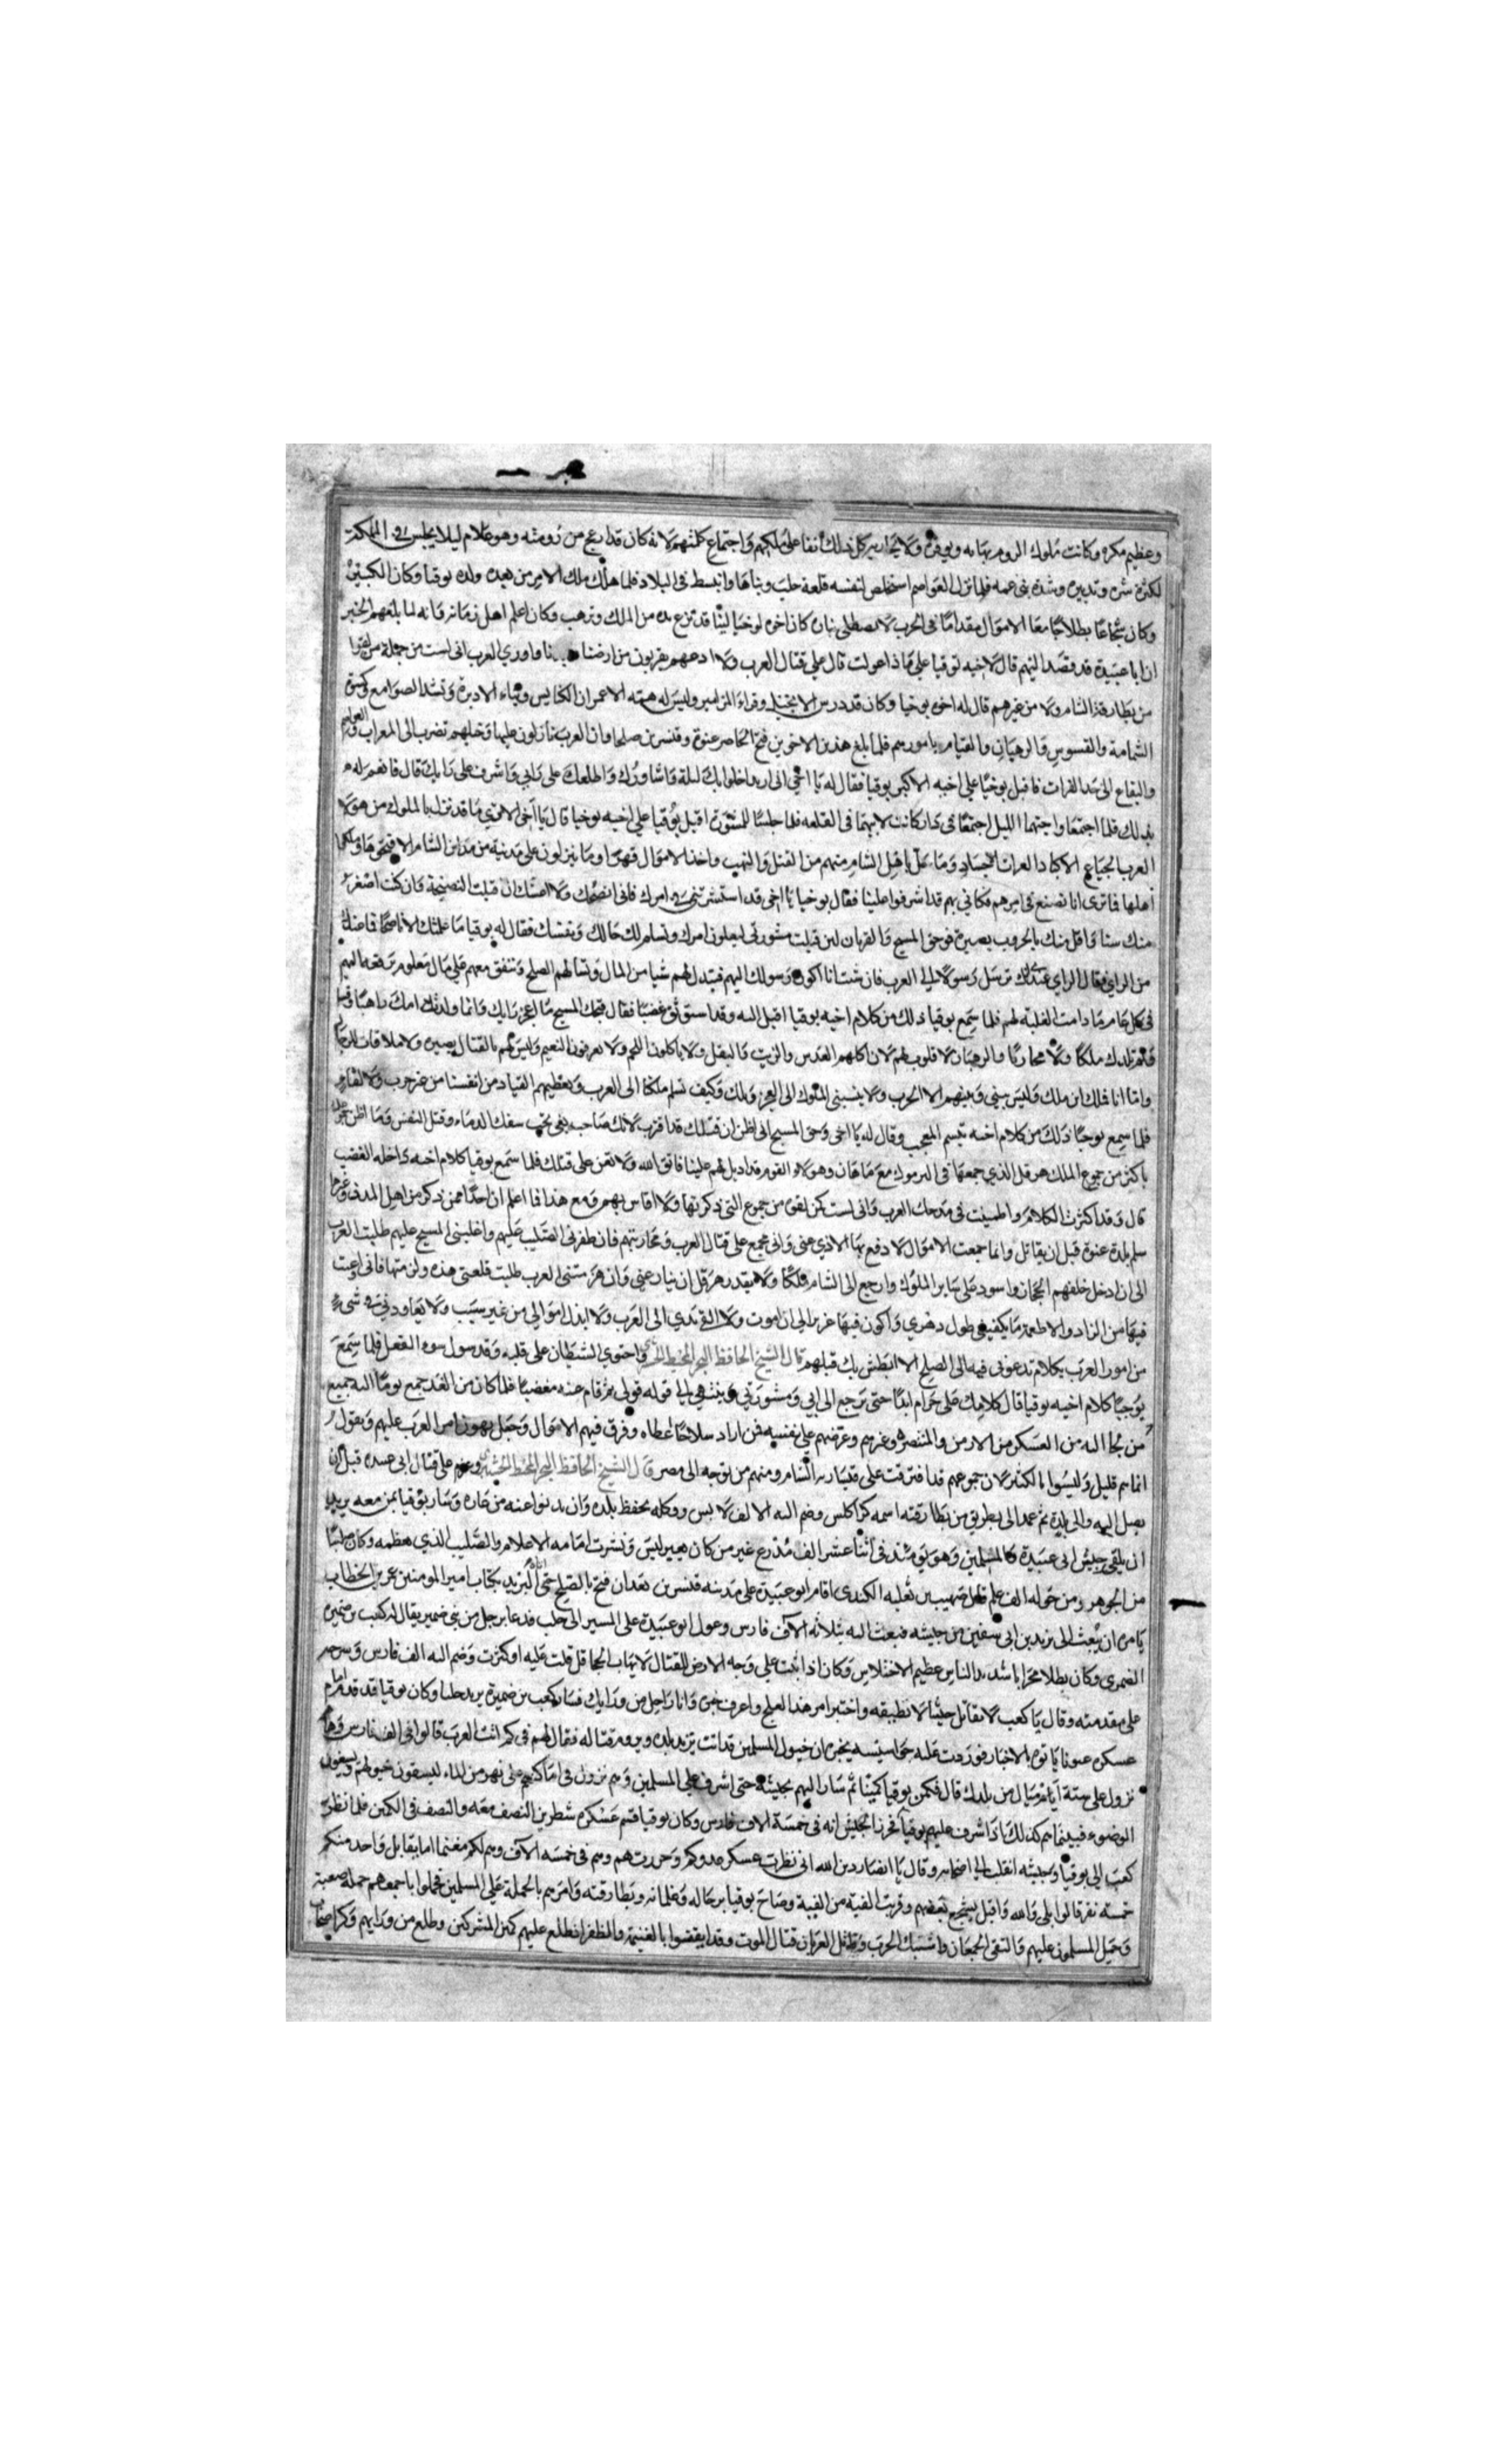 وعظيم مكره وكانت ملوك الروم تهابه ويوقره ولا يحاربه كل ذلك أنفا على ملكهم واجتماع كلمتهم لانه كان قد ازعج من رومته وهو غلام ليلا يجلس في المملكة
لكثرة شره وتدبيره وشدة بني عمه فلما نزل العواصم استخلص لنفسه قلعة حلب وبناها وانبسط في البلاد فلما هلك ملك الامر من بعده ولده يوقيا وكان الكبير
وكان شجاعا بطلا جامعا الاموال مقداما في الحرب لا يصطلى بناره كان اخوه يوحنا لينا قد نزع يده من الملك وترهب وكان اعلم اهل زمانه قانه لما بلغهم الخبر
ان ابا عبيدة قد قصد اليهم قال لاخيه يوقيا على ماذا عولت قال على قتال العرب ولا ادعهم يقربون من ارضنا العرب اني لست من جملة من لقوا
من بطارقة الشام ولا من غيرهم قال له اخوه يوحنا وكان قد درس الانجيل وقراء المزامير وليس له همة الا عمران الكنايس وبناء الاديرة وتشد الصوامع وكسوة
الشمامسة والقسوس والرهبان والقيام بامورهم فلما بلغ هذين الاخوين فتح الحاضر عنوة وقنسرين صلحا وان العرب نازلون عليها وخيلهم تضرب الى المعرات والعواصم
والبقاع الى سد الفرات فاقبل يوحنا على اخيه الاكبر يوقيا فقال له يا اخي اني اريد اخلوا بك ليلة واشاورك واطلعك على رايي واشرف على رايك قال فانعم له
بذلك فلما اجتمعا واجتهما الليل اجتمعا في دار كانت لابيهما في القلعه فلما جلسا للمشورة اقبل يوقيا على اخيه يوحنا قال يا اخي الا ترى ما قد نزل بالملوك من هولا
العرب الجياع الاكباد العراة الاجساد وما حل باهل الشام منهم من القتل والنهب واخذ الاموال قهرا وما ينزلون على مدينة من مداين الشام الا فتحوها وملكوا
اهلها فما ترى انا نصنع في امرهم فكاني بهم قد اشرفوا علينا فقال يوحنا يا اخي قد استشرتني في امرك فاني انصحك ولا اغشك ان قبلت النصيحة وان كنت اصغر
منك سنا واقل منك بالحروب بصيرة فوحق المسيح والقربان لين قبلت مشورتي ليعلون امرك وتسلم لك حالك ونفسك فقال له يوقيا ما علمتك الا ناصحا فما عندك
من الراي فقال الراي عندي انك ترسل رسولا الى العرب فان شئت انا اكون رسولك اليهم فتبدل لهم شيا من المال وتسالهم الصلح وتتفق معهم على مال معلوم ترفعه اليهم
في كل عام ما دامت الغلبة لهم فلما سمع يوقيا ذلك من كلام اخيه يوقيا اقبل اليه وقد استوثق غضبا فقال قبحك المسيح ما اعجز رايك وانما ولدتك امك راهبا وقسا
ولم تلدك ملكا ولا محاربا والرهبان لا قلوب لهم لان اكلهم العدس والزيت والبقل ولا ياكلون اللحم ولا يعرفون النعيم وليس لهم بالقتال بصيرة ولا ملاقات الرجال
واما انا فملك ابن ملك وليس بيني وبينهم الا الحرب ولا ينسبني الملوك الى العجز ويلك وكيف نسلم ملكنا الى العرب ونعطيهم القياد من انفسنا من غير حرب ولا لقاء
فلما سمع يوحنا ذلك من كلام اخيه تبسم المعجب وقال له يا اخي وحق المسيح اني اظن ان قتلك قد اقرب لانك صاحب بغي تحب سفك الدماء وقتل النفس وما اظن جموعك
باكثر من جموع الملك هرقل الذي جمعها في اليرموك مع ماهان وهولا القوم قد اديل لهم علينا فاتق الله ولا تعن على قتلك فلما سمع يوقيا كلام اخيه داخله الغضب
قال وقد اكثرت الكلام واطنبت في مدحك العرب واني لست كمن لقوا من جموع التي ذكرتها ولا اقاس بهم ومع هذا فما اعلم ان احدا ممن ذكر من اهل المدن وغيرها
سلم بلده عنوة قبل ان يقاتل وانما جمعت الاموال لادفع بها الاذي عني واني مجمع على قتال العرب ومحاربتهم فان ظفرني الصليب عليهم واغلبني المسيح عليهم طلبت العرب
الى ان ادخل خلفهم الحجاز واسود على ساير الملوك وارجع الى الشام ملكا ولا يقدر هرقل ان ينازعني وان هزمتني العرب طلبت قلعتي هذه ولزمتها فاني اوعيت
فيها من الزاد والاطعمة ما يكفيني طول دهري واكون فيها عزيزا الى ان اموت ولا القى يدي الى العرب ولا ابذل اموالي من غير سبب ولا تعاودني في شيء
من امور العرب بكلام تدعوني فيه الى الصلح الا ابطش بك قبلهم قال الشيخ الحافظ البحر المحيط واحتوي الشيطان على قلبه وقد سول سوء الفعل فلما سمع
يوحنا كلام اخيه يوقيا قال كلامك على حرام ابدا حتى ترجع الى رايي ومشورتي وينتهي الى قوله قولي ثم قام عنه مغضبا فلما كان من الغد جمع يوقيا اليه جميع
من لجا اليه من العسكر من الارمن والمتنصرة وغيرهم وعرضهم على نفسه فمن اراد سلاحا اعطاه وفرق فيهم الاموال وجعل يهون امر العرب عليهم ويقول
انما هم قليل وليسوا بالكثير لان جموعهم قد افترقت على قيسارية الشام ومنهم من توجه الى مصر قال الشيخ الحافظ البحر المحيط وعزم على قتال ابي عبيدة قبل ان
يصل اليه والى بلده ثم عمد الى بطريق من بطارقته اسمه كراكلس وضم اليه الالف لابس ووكله بحفظ بلده وان يدنوا عنه من غاره وسار يوقيا بمن معه يريد
ان يلقى جيش ابي عبيدة والمسلمين وهو يومئذ في اثنا عشر الف مدرع غير من كان بغير لبس ونشرت امامه الاعلام والصليب الذي يعظمه وكان صليبا
من الجوهر ومن حوله الف علم صهيب بن ثعلبه الكندي اقام ابو عبيدة على مدينه قنسرين بعد ان فتح بالصلح حتى اتاه البريد بكتاب امير المومنين عمر بن الخطاب
يامره ان يبعث الى يزيد بن ابي سفين من جيشه فبعث اليه بثلاثه الآف فارس وعول ابو عبيدة على المسير الى حلب فدعا برجل من بني ضمير يقال له كعب بن ضميرة
الضمرى وكان بطلا مجرابا شديد الناس عظيم الاختلاس وكان اذا اثبت على وجه الارض للقتال لا يهاب الجحافل قلت عليه او كثرت وضم اليه الف فارس وسرحه
على مقدمته وقال يا كعب لا تقاتل جيشا لا تطيقه واختبر امر هذا العلج واعرف خبره وانا راحل من ورايك فسار كعب بن ضميرة يريد حلبا وكان يوقيا قد قدم امام
عسكره عيونا ياتوه بالاخبار فوردت عليه جواسيسه يخبره ان خيول المسلمين قد اتت تريد بلده ويروم قتاله فقال لهم في كم انت العرب قالوا في الف فارس وها
نزول على ستة اميال من بلدك قال فكمن يوقيا كمينا ثم سار اليهم بجيشه حتى اشرف على المسلمين وهم نزول في اماكنهم على نهر من الماء ليسقون خيولهم ويسبغون
الوضوء فبينما هم كذلك اذا اشرف عليهم يوقيا فحرز الجيش انه في خمسة الاف فارس وكان يوقيا قسم عسكره شطرين النصف معه والنصف في الكمين فلما نظر
كعب الى يوقيا وجيشه انقلب الى اصحابه وقال يا انصار دين الله اني نظرت عسكر عدوكم وحررت هم وهم في خمسه الآف وهم لكم مغنما اما يقابل واحد منكم
خمسة نفر قالوا بلى والله واقبل يشجع بعضهم وقربت الفية من الفية وصاح يوقيا برجاله وغلمانه وبطارقته وامرهم بالحملة على المسلمين فحملوا باجمعهم حملة صعبة
وحمل المسلمون عليهم والتقى الجمعان واشتبك الحرب قتال الموت وقد ايقنوا بالغنيمة والظفر اذ طلع عليهم كمين المشركين وطلع من ورايهم وكر اصحاب